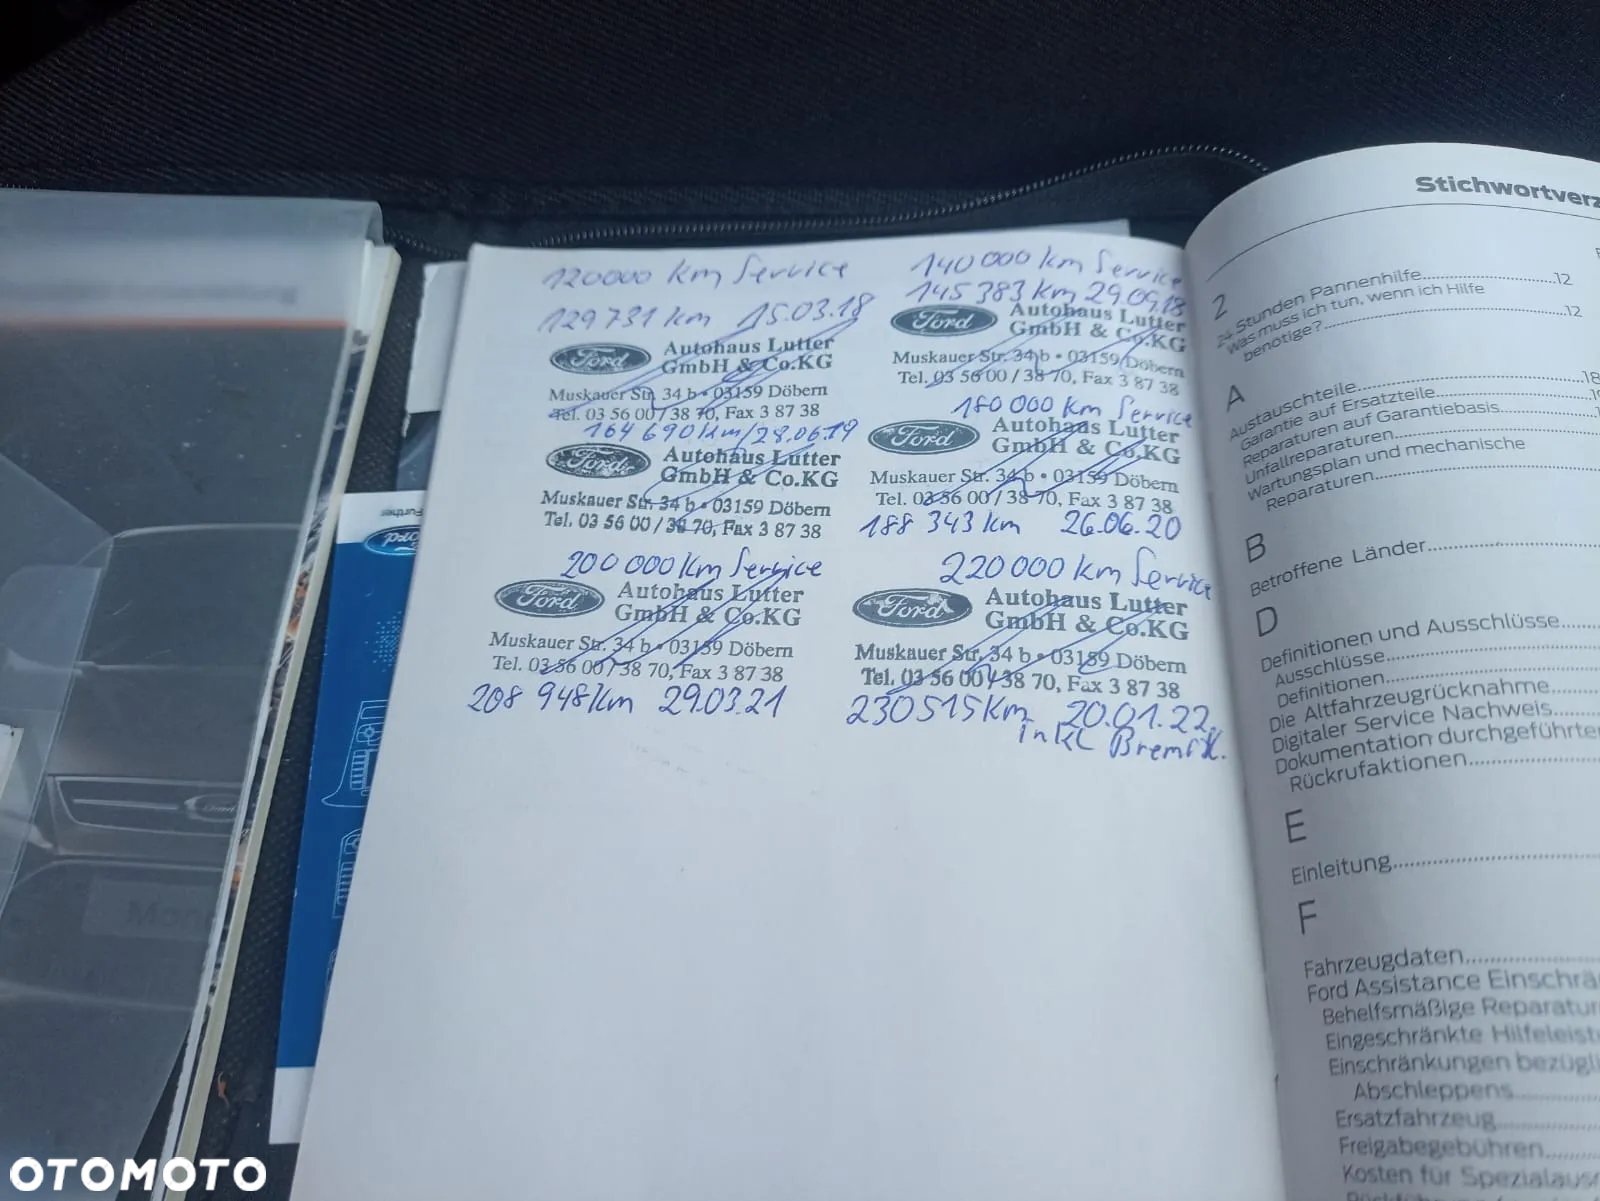 120000 km Service
129731 km 15.03.18
Ford
Autohaus Lutter
GmbH & Co.KG
Muskauer Str. 34 b • 03159 Döbern
Tel. 03 56 00 / 38 70, Fax 3 87 38
164 690 km/28.06.19
Ford
Autohaus Lutter
GmbH & Co.KG
Muskauer Str. 34 b • 03159 Döbern
Tel. 03 56 00 / 38 70, Fax 3 87 38
200 000 km Service
Ford
Autohaus Lutter
GmbH & Co.KG
Muskauer Str. 34 b • 03159 Döbern
Tel. 03 56 00 / 38 70, Fax 3 87 38
208 948 km 29.03.21
140 000 km Service
145 383 km 29.09.18
Ford
Autohaus Lutter
GmbH & Co.KG
Muskauer Str. 34 b • 03159 Döbern
Tel. 03 56 00 / 38 70, Fax 3 87 38
180 000 km Service
Ford
Autohaus Lutter
GmbH & Co.KG
Muskauer Str. 34 b • 03159 Döbern
Tel. 03 56 00 / 38 70, Fax 3 87 38
188 343 km 26.06.20
220 000 km Service
Ford
Autohaus Lutter
GmbH & Co.KG
Muskauer Str. 34 b • 03159 Döbern
Tel. 03 56 00 / 38 70, Fax 3 87 38
230515 km 20.01.22
inkl Bremsfl.
Stichwortverz
2
24 Stunden Pannenhilfe...12
Was muss ich tun, wenn ich Hilfe
benötige?...12
A
Austauschteile...18
Garantie auf Ersatzteile
Reparaturen auf Garantiebasis
Unfallreparaturen
Wartungsplan und mechanische
Reparaturen
B
Betroffene Länder
D
Definitionen und Ausschlüsse
Ausschlüsse
Definitionen
Die Altfahrzeugrücknahme
Digitaler Service Nachweis
Dokumentation durchgeführter
Rückrufaktionen
E
Einleitung
F
Fahrzeugdaten
Ford Assistance Einschrä
Behelfsmäßige Reparatur
Eingeschränkte Hilfeleist
Einschränkungen bezügl
Abschleppens
Ersatzfahrzeug
Freigabegebühren
Kosten für Spezialaus
Further
Ford
OTOMOTO